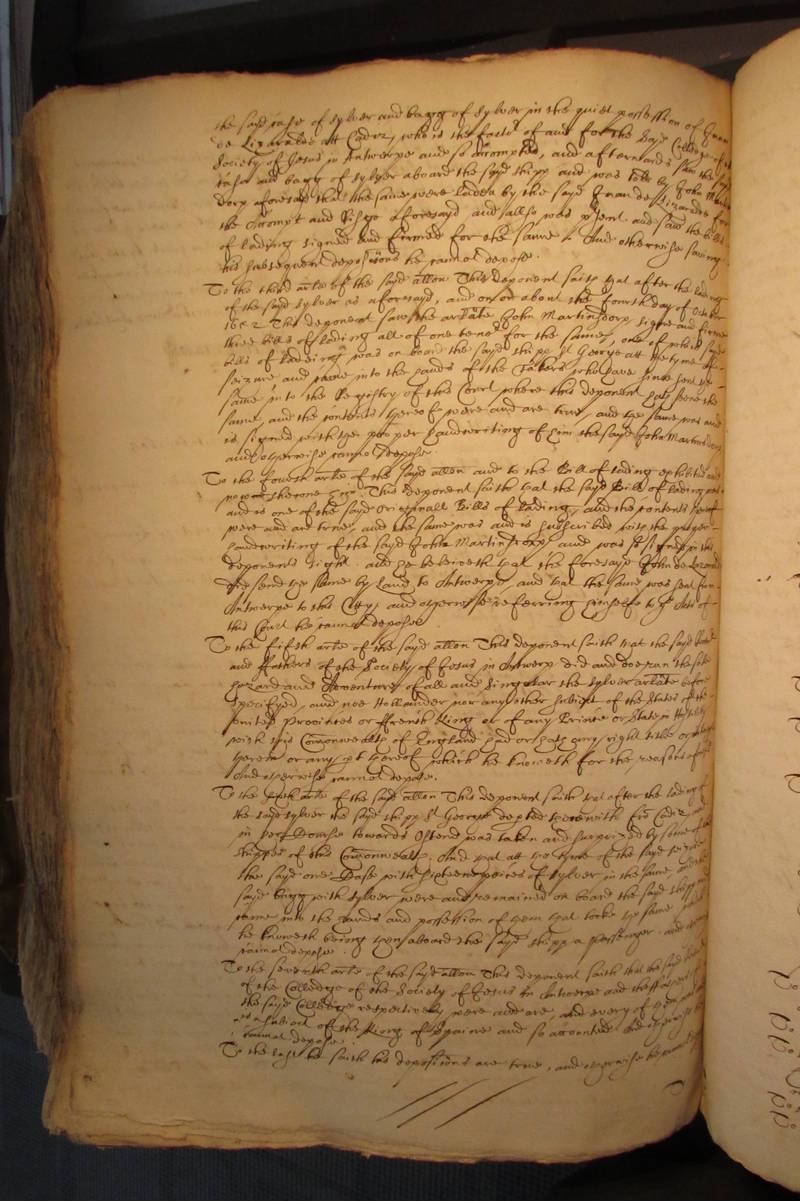 the sayd case of sylver and bagg of sylver in the quiet possession of Juan
de Lizarades att Cadez, who is the factor of and for the sayd Colledge
Society of Jesus in Antwerpe and so accompted, and afterwards saw the sayd
case and bagg of sylver aboard the sayd shipp and was told by John Martins
dorp aforesaid that the same were laden by the sayd Juan de Lizarades for
the Accompt and Risgo aforesayd and allso was p'sent and saw the bills
of lading signed and firmed for the same And otherwise saving
his subsequent depositions he cannot depose.
To the third arle of the sayd allon This deponent saith that after the lading
of the sayd sylver as aforesayd, and on or about the fourth day of October
1652 This deponent saw the arlate John Martinsdorp signe and firme
three bills of lading all of one tenor for the same, one of which sayd
bills of ladeing was on board the sayd shipp St George att the tyme of
seizure and came into the hands of the Takers who have since sent the
same in to the Registry of this Court where this deponent hath seene the
same and the contents thereof were and are true, and the same was and
is signed with the proper handwriting of him the sayd John Martinsdorp
and otherwise cannot depose.
To the fourth arle of the sayd allon and to the Bill of lading exhibited and
now This deponent saith that the sayd Bill of lading was
and is one of the sayd originall Bills of lading, and the contents thereof
were and are true, and the same was and is subscribed with the proper
handwriting of the sayd John Martinsdorp, and was so signed in this
deponents sight. and he beleeveth that the foresayd John de Lizarades
did send the same by Land to Antwerpe and that the same was sent from
Antwerpe to this Citty, and otherwise referring himselfe to the Acts of
this Court he cannot depose.
To the fifth arle of the sayd allon This deponent saith that the sayd
and Fathers of the Society of Jesus in Antwerp did and doe run the sole
hazard and Adventure of all and singular the sylver arlate before
specifyed, and noe Hollander nor any other subiect of the States of the
United Provinces or French King or of any Prince or State in Hostility
with this Comonwealth of England had or hath any right title or
therein or any pt thereof which he knoweth for the reasons aforesayd
And otherwise cannot depose.
To the sixth arle of the sayd allon This deponent saith that after the lading of
the sayd sylver the sayd shipp St George depted therewith from Cadez and
in her Course towards Ostend was taken and surprized by some of the
shipps of this Comonwealth. And that att the tyme of the sayd seizure
the sayd one Case with sixteene peices of sylver in the same and the
sayd bagg with sylver were and remained on board the sayd shipp and
came into the hands and possession of them that tooke the same
he knoweth being then aboard the sayd shipp a passenger. and otherwise
cannot depose.
To the seventh arle of the sayd allon This deponent saith that the sayd
of the Colledge of the Society of Jesus in Antwerpe and the
the sayd Colledge respectively were and are, and every of them was and
is a subiect of the King of Spaine and so accounted. And otherwise he
cannot depose.
To the last he saith his depositions are true, and otherwise he cannot